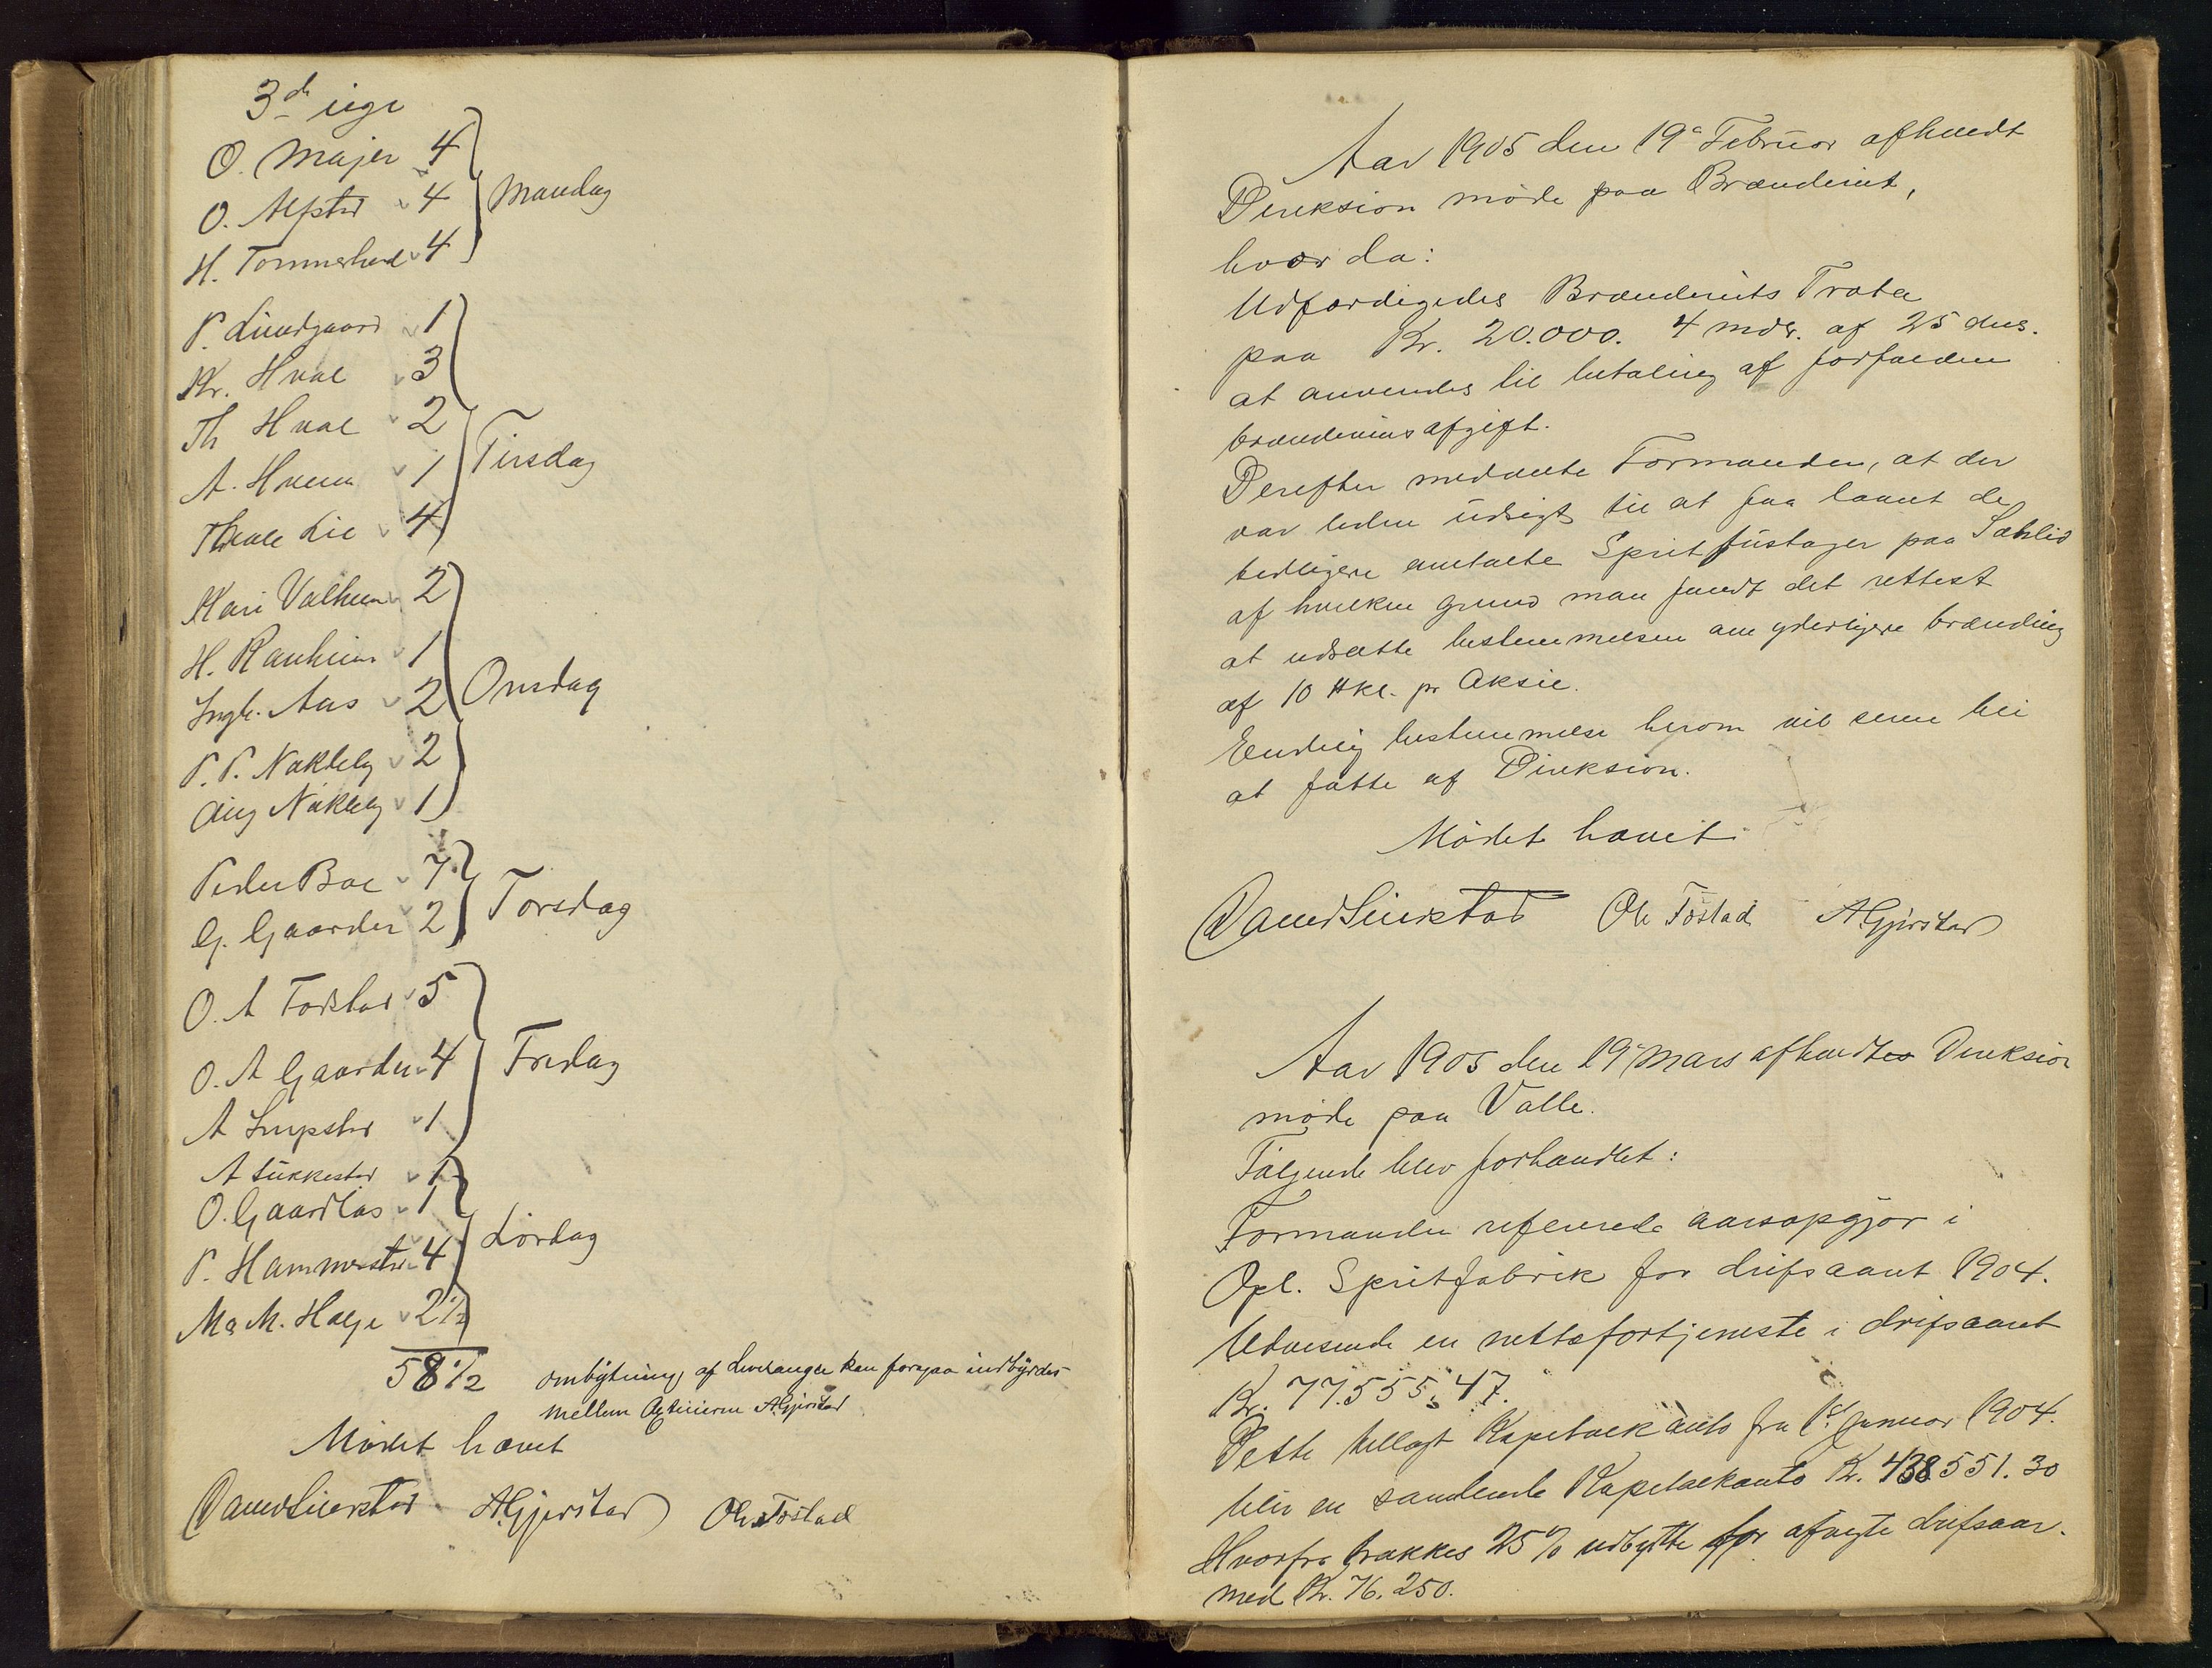 3de uge
O. Majer 4
O. Alfstad 4
H. Tommerhol 4
Mandag
P. Lundgaard 1
Kr. Hval 3
Th Hval 2
A. Hveem 1
Thvale Lie 4
Tirsdag
Kari Valhun 2
H. Rauheim 1
Ingb. Aas 2
P. P. Nøkleby 2
Aug Nøkleby 1
Onsdag
Peder Boe 7
G. Gaarder 2
Torsdag
O. A Fodstad 5
O. A Gaarder 4
A 1
Fredag
A Sukkestad 1
O. Gaardløs 1
P. Hammerstad 4
M & M. Holje 2½
Lørdag
58½
ombytning af Leverangse kan foregaa indbyrdes
mellem Agtierne AGjerstad
Mødet hævet
AGjerstad Ole Tøstad
Aar 1905 den 19de Februar afholdt
Direksion møde paa Brænderiet,
hvor da:
Udfærdigedes Brænderiets Trata
paa Kr. 20.000. 4 mdr. af 25 dns.
at anvendes til betaling af forfalden
brændevinsafgift.
Derefter meddelte Formanden, at der
var liden udsigt til at faa laant de
tidligere omtalte Spritfustager paa Sahlis
af hvilken grund man fandt det rettest
at udsætte bestemmelsen om yderligere brænding
af 10 Hkl. pr Aksie.
Endelig bestemmelse herom vil senere bli
at fatte af Direksion.
Mødet hævet
Ole Tøstad AGjerstad
Aar 1905 den 19de Mars afholdtes Direksion
møde paa Valle.
Følgende blev forhandlet:
Formanden refererede aarsopgjør i
Opl. Spritfabrik for drifsaaret 1904.
Udvisende en nettofortjeneste i drifsaaret
Kr. 77.555,47.
Dette tillagt Kapitalkonto fra 1ste Januar 1904.
blir en samlende Kapitalkonto Kr. 438551.30
Hvorfra trækkes 25% udbytte for afvigte drifsaar.
med Kr. 76.250.